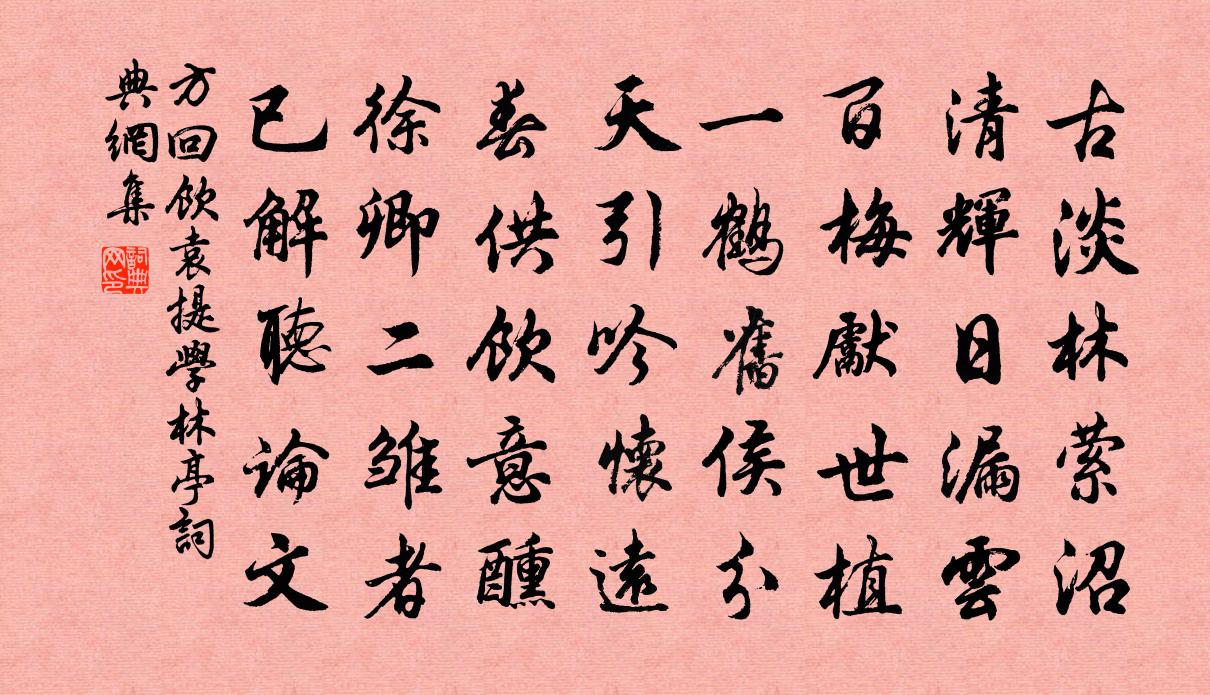 古淡林縈沼
清輝日漏雲
百梅獻世植
一鶴舊侯分
天引吟懷遠
春供飲意醺
徐卿二雏者
已解聽論文
方回飲袁提學林亭詞
典網集
詞典
网印